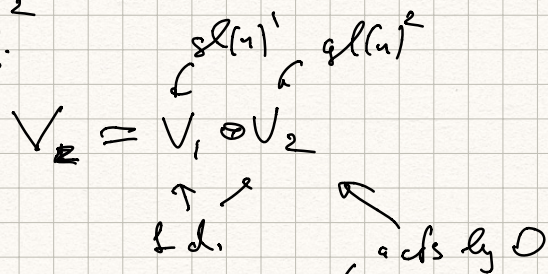 2
sl(n)¹ gl(n)²
V = V₁ ⊗ V₂
f. d.
acts by 0